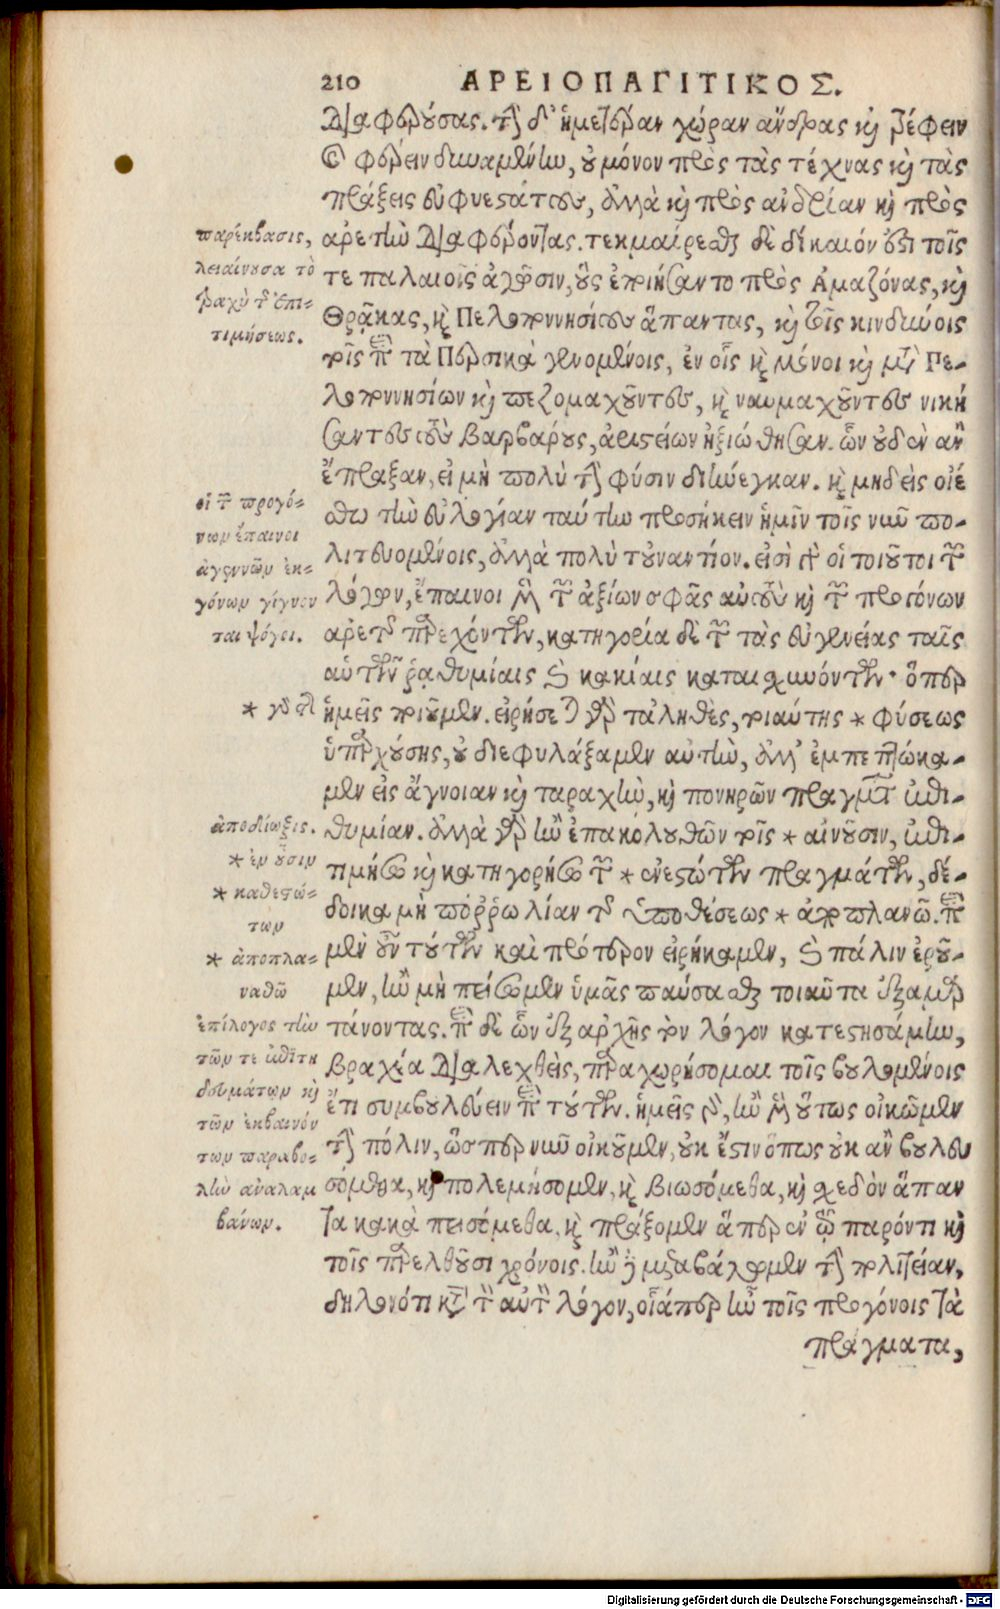 210 ΑΡΕΙΟΠΑΓΙΤΙΚΟΣ.
διαφερούσας. τὴν δ' ἡμετέραν χώραν ἄνδρας καὶ τρέφειν
καὶ φέρειν δυναμένην, οὐ μόνον πρὸς τὰς τέχνας καὶ τὰς
πράξεις εὐφυεστάτους, ἀλλὰ καὶ πρὸς ἀνδρίαν καὶ πρὸς
ἀρετὴν διαφέροντας. τεκμαίρεσθαι δὲ δίκαιόν ἐστι τοῖς
τε παλαιοῖς ἀγῶσιν, οὓς ἐποιήσαντο πρὸς Ἀμαζόνας, καὶ
Θρᾷκας, καὶ Πελοποννησίους ἅπαντας, καὶ τοῖς κινδύνοις
τοῖς περὶ τὰ Περσικὰ γενομένοις, ἐν οἷς καὶ μόνοι καὶ μετὰ Πε-
λοποννησίων καὶ πεζομαχοῦντες, καὶ ναυμαχοῦντες νική
σαντες τοὺς βαρβάρους, ἀριστείων ἠξιώθησαν. ὧν οὐδὲν ἂν
ἔπραξαν, εἰ μὴ πολὺ τὴν φύσιν διήνεγκαν. καὶ μηδεὶς οἰέ
σθω τὴν εὐλογίαν ταύτην προσήκειν ἡμῖν τοῖς νῦν πο-
λιτευομένοις, ἀλλὰ πολὺ τοὐναντίον. εἰσὶ γὰρ οἱ τοιοῦτοι τῶν
λόγων, ἔπαινοι μὲν τῶν ἀξίων σφᾶς αὐτοὺς καὶ τῶν προγόνων
ἀρετῆς παρεχόντων, κατηγορία δὲ τῶν τὰς εὐγενείας ταῖς
αὑτῶν ῥᾳθυμίαις καὶ κακίαις καταισχυνόντων· ὅπερ
ἡμεῖς ποιοῦμεν. εἰρήσεται γὰρ τἀληθὲς, τοιαύτης * φύσεως
ὑπαρχούσης, οὐ διεφυλάξαμεν αὐτὴν, ἀλλ' ἐμπεπτώκα-
μεν εἰς ἄγνοιαν καὶ ταραχὴν, καὶ πονηρῶν πραγμάτων ἐπι-
θυμίαν. ἀλλὰ γὰρ ἢν ἐπακολουθῶν τοῖς * αἰνοῦσιν, ἐπι-
τιμήσω καὶ κατηγορήσω τῶν * ἐνεστώτων πραγμάτων, δέ-
δοικα μὴ πόῤῥω λίαν τῆς ὑποθέσεως * ἀποπλανῶ. περὶ
μὲν οὖν τούτων καὶ πρότερον εἰρήκαμεν, καὶ πάλιν ἐροῦ-
μεν, ἢν μὴ πείσωμεν ὑμᾶς παύσασθαι τοιαῦτα ἐξαμαρ
τάνοντας. περὶ δὲ ὧν ἐξ ἀρχῆς τὸν λόγον κατεστησάμην,
βραχέα διαλεχθεὶς, παραχωρήσομαι τοῖς βουλομένοις
ἔτι συμβουλεύειν περὶ τούτων. ἡμεῖς γὰρ, ἢν μὲν οὕτως οἰκῶμεν
τὴν πόλιν, ὥσπερ νῦν οἰκοῦμεν, οὐκ ἔστιν ὅπως οὐκ ἂν βουλευ
σόμεθα, καὶ πολεμήσομεν, καὶ βιωσόμεθα, καὶ σχεδὸν ἅπαν
τα κακὰ πεισόμεθα, καὶ πράξομεν ἅπερ ἐν τῷ παρόντι καὶ
τοῖς παρελθοῦσι χρόνοις. ἢν δὲ μεταβάλωμεν τὴν πολιτείαν,
δηλονότι κατὰ τὸν αὐτὸν λόγον, οἷάπερ ἦν τοῖς προγόνοις τὰ
πράγματα,
παρέκβασις,
λειαίνουσα τὸ
βραχὺ τῆς ἐπι-
τιμήσεως.
οἱ τῶν προγό-
νων ἔπαινοι
ἀγεννῶν ἐκ-
γόνων γίγνον
ται ψόγοι.
* γὰρ
ἀποδίωξις.
* ἐν οὖσιν
* καθεστώ-
των
* ἀποπλα-
ναθῶ
ἐπίλογος τὴν
τῶν τε ἐπιτη
δευμάτων καὶ
τῶν ἐκβαινόν
των παραβο-
λὴν ἀναλαμ
βάνων.
Digitalisierung gefördert durch die Deutsche Forschungsgemeinschaft - DFG